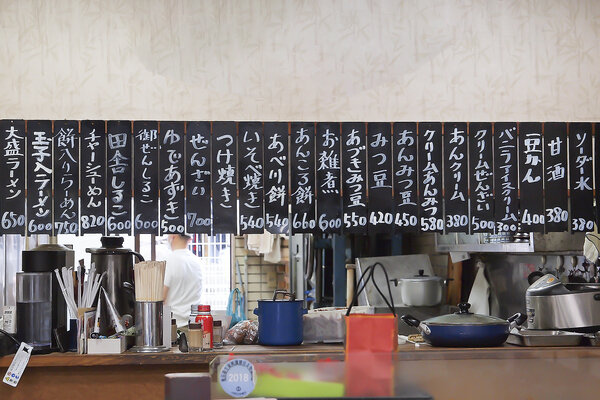 ソーダ水 380
甘酒 380
豆かん 400
バニラアイス 300
クリームぜんざい 500
あんクリーム 380
クリームあんみつ 580
あんみつ 450
みつ豆 420
あづきみつ豆 550
お雑煮 600
あんころ餅 660
あべ川餅 540
いそべ焼 540
つけ焼き 540
ぜんざい 700
ゆであずき 500
御ぜんしるこ 600
田舎しるこ 600
チャーシューめん 820
餅入りらーめん 750
玉子入ラーメン 600
大盛ラーメン 650
2018